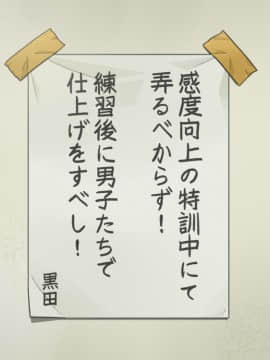 感度向上の特訓中にて
弄るべからず！
練習後に男子たちで
仕上げをすべし！
黒田